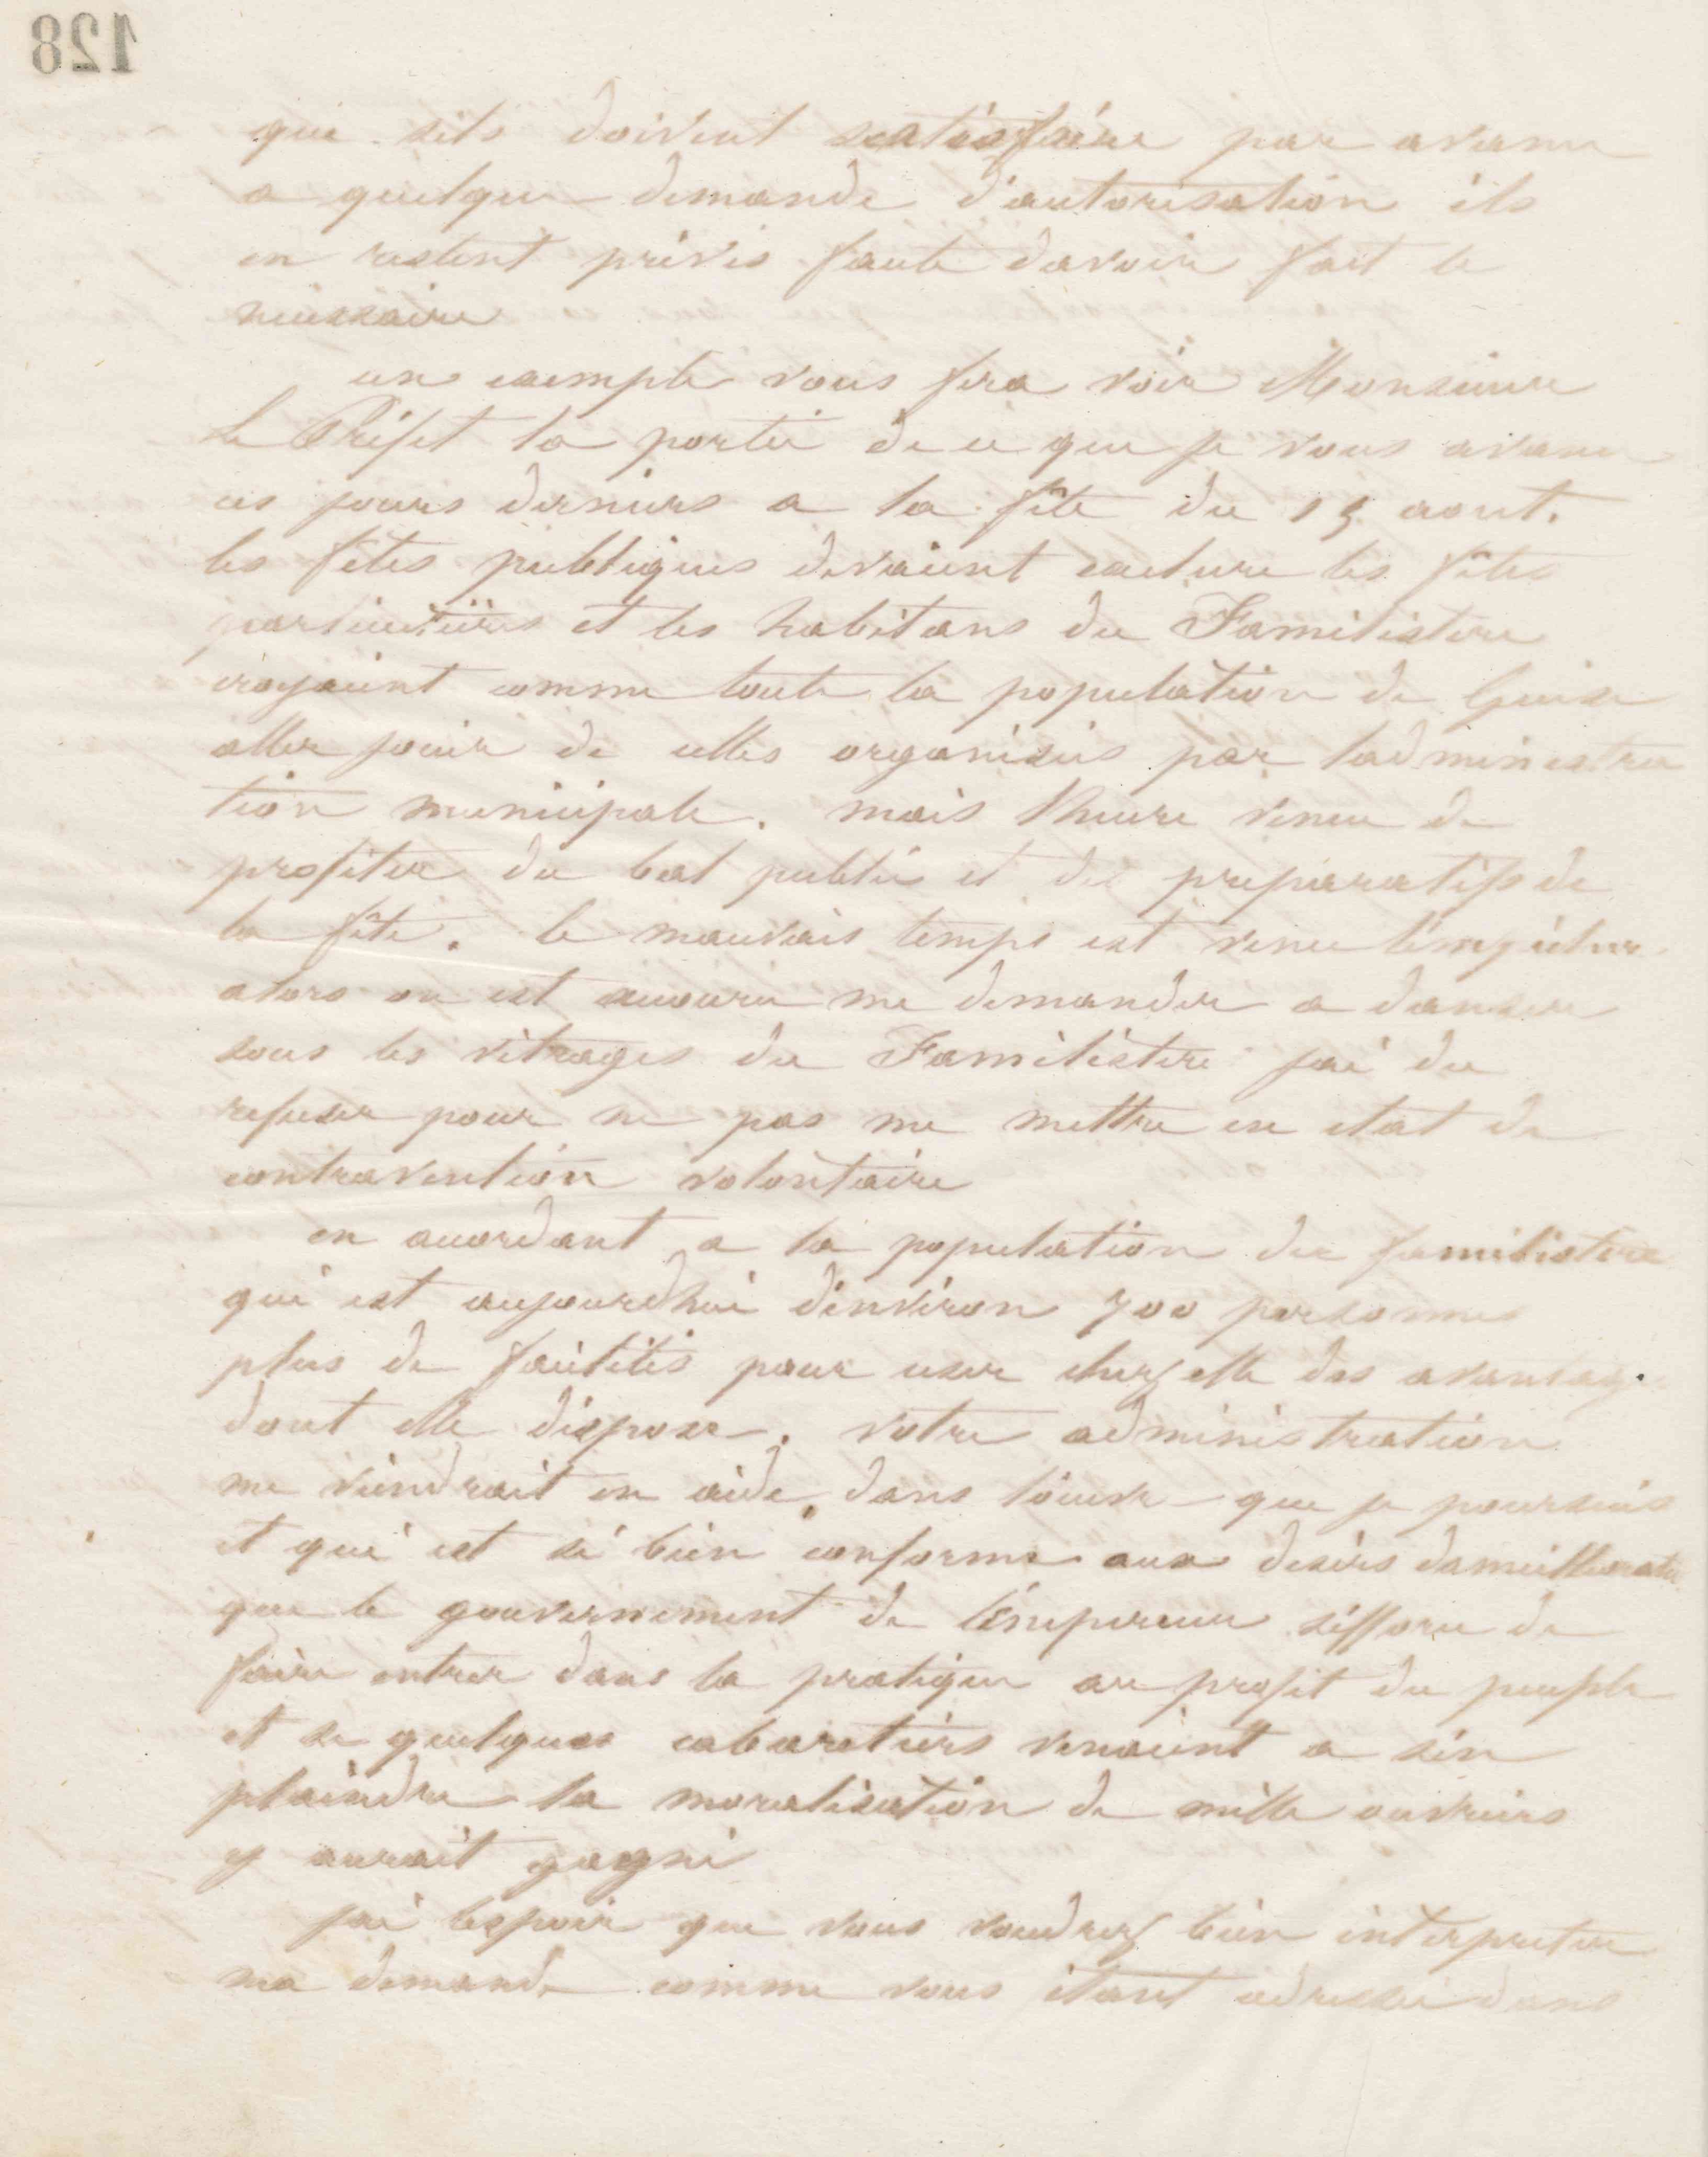 128
que sils doivent satisfaire par avance
a quelque demande d'autorisation ils
en restent privés faute davoir fait le
nécessaire
un exemple vous fera voir Monsieur
le Préfet la portée de ce que je vous avance
ces jours derniers a la fête du 15 aout.
les fêtes publiques devaient exclure les fêtes
particulières et les habitans du Familistere
croyaient comme toute la population de Guise
aller jouir de celles organisées par ladministra
tion municipale. mais l'heure venue de
profiter du bal public et des preparatifs de
la fête. le mauvais temps est venu l'empêcher
alors on est accouru me demander a danser
sous les vitrages du Familistère jai du
refuser pour ne pas me mettre en etat de
contravention volontaire
en accordant a la population du familistère
qui est aujourdhui d'environ 700 personnes
plus de facilités pour user chez elle des avantag
dont elle dispose. votre administration
me viendrait en aide, dans l'œuvre que je poursuis
et qui est si bien conforme aux desirs dameillioratio
que le gouvernement de l'empereur s'efforce de
faire entrer dans la pratique au profit du peuple
et si quelques cabaretiers venaient a s'en
plaindre la moralisation de mille ouvriers
y aurait gagné
jai lespoir que vous voudrez bien interpreter
ma demande comme vous étant adressée dans